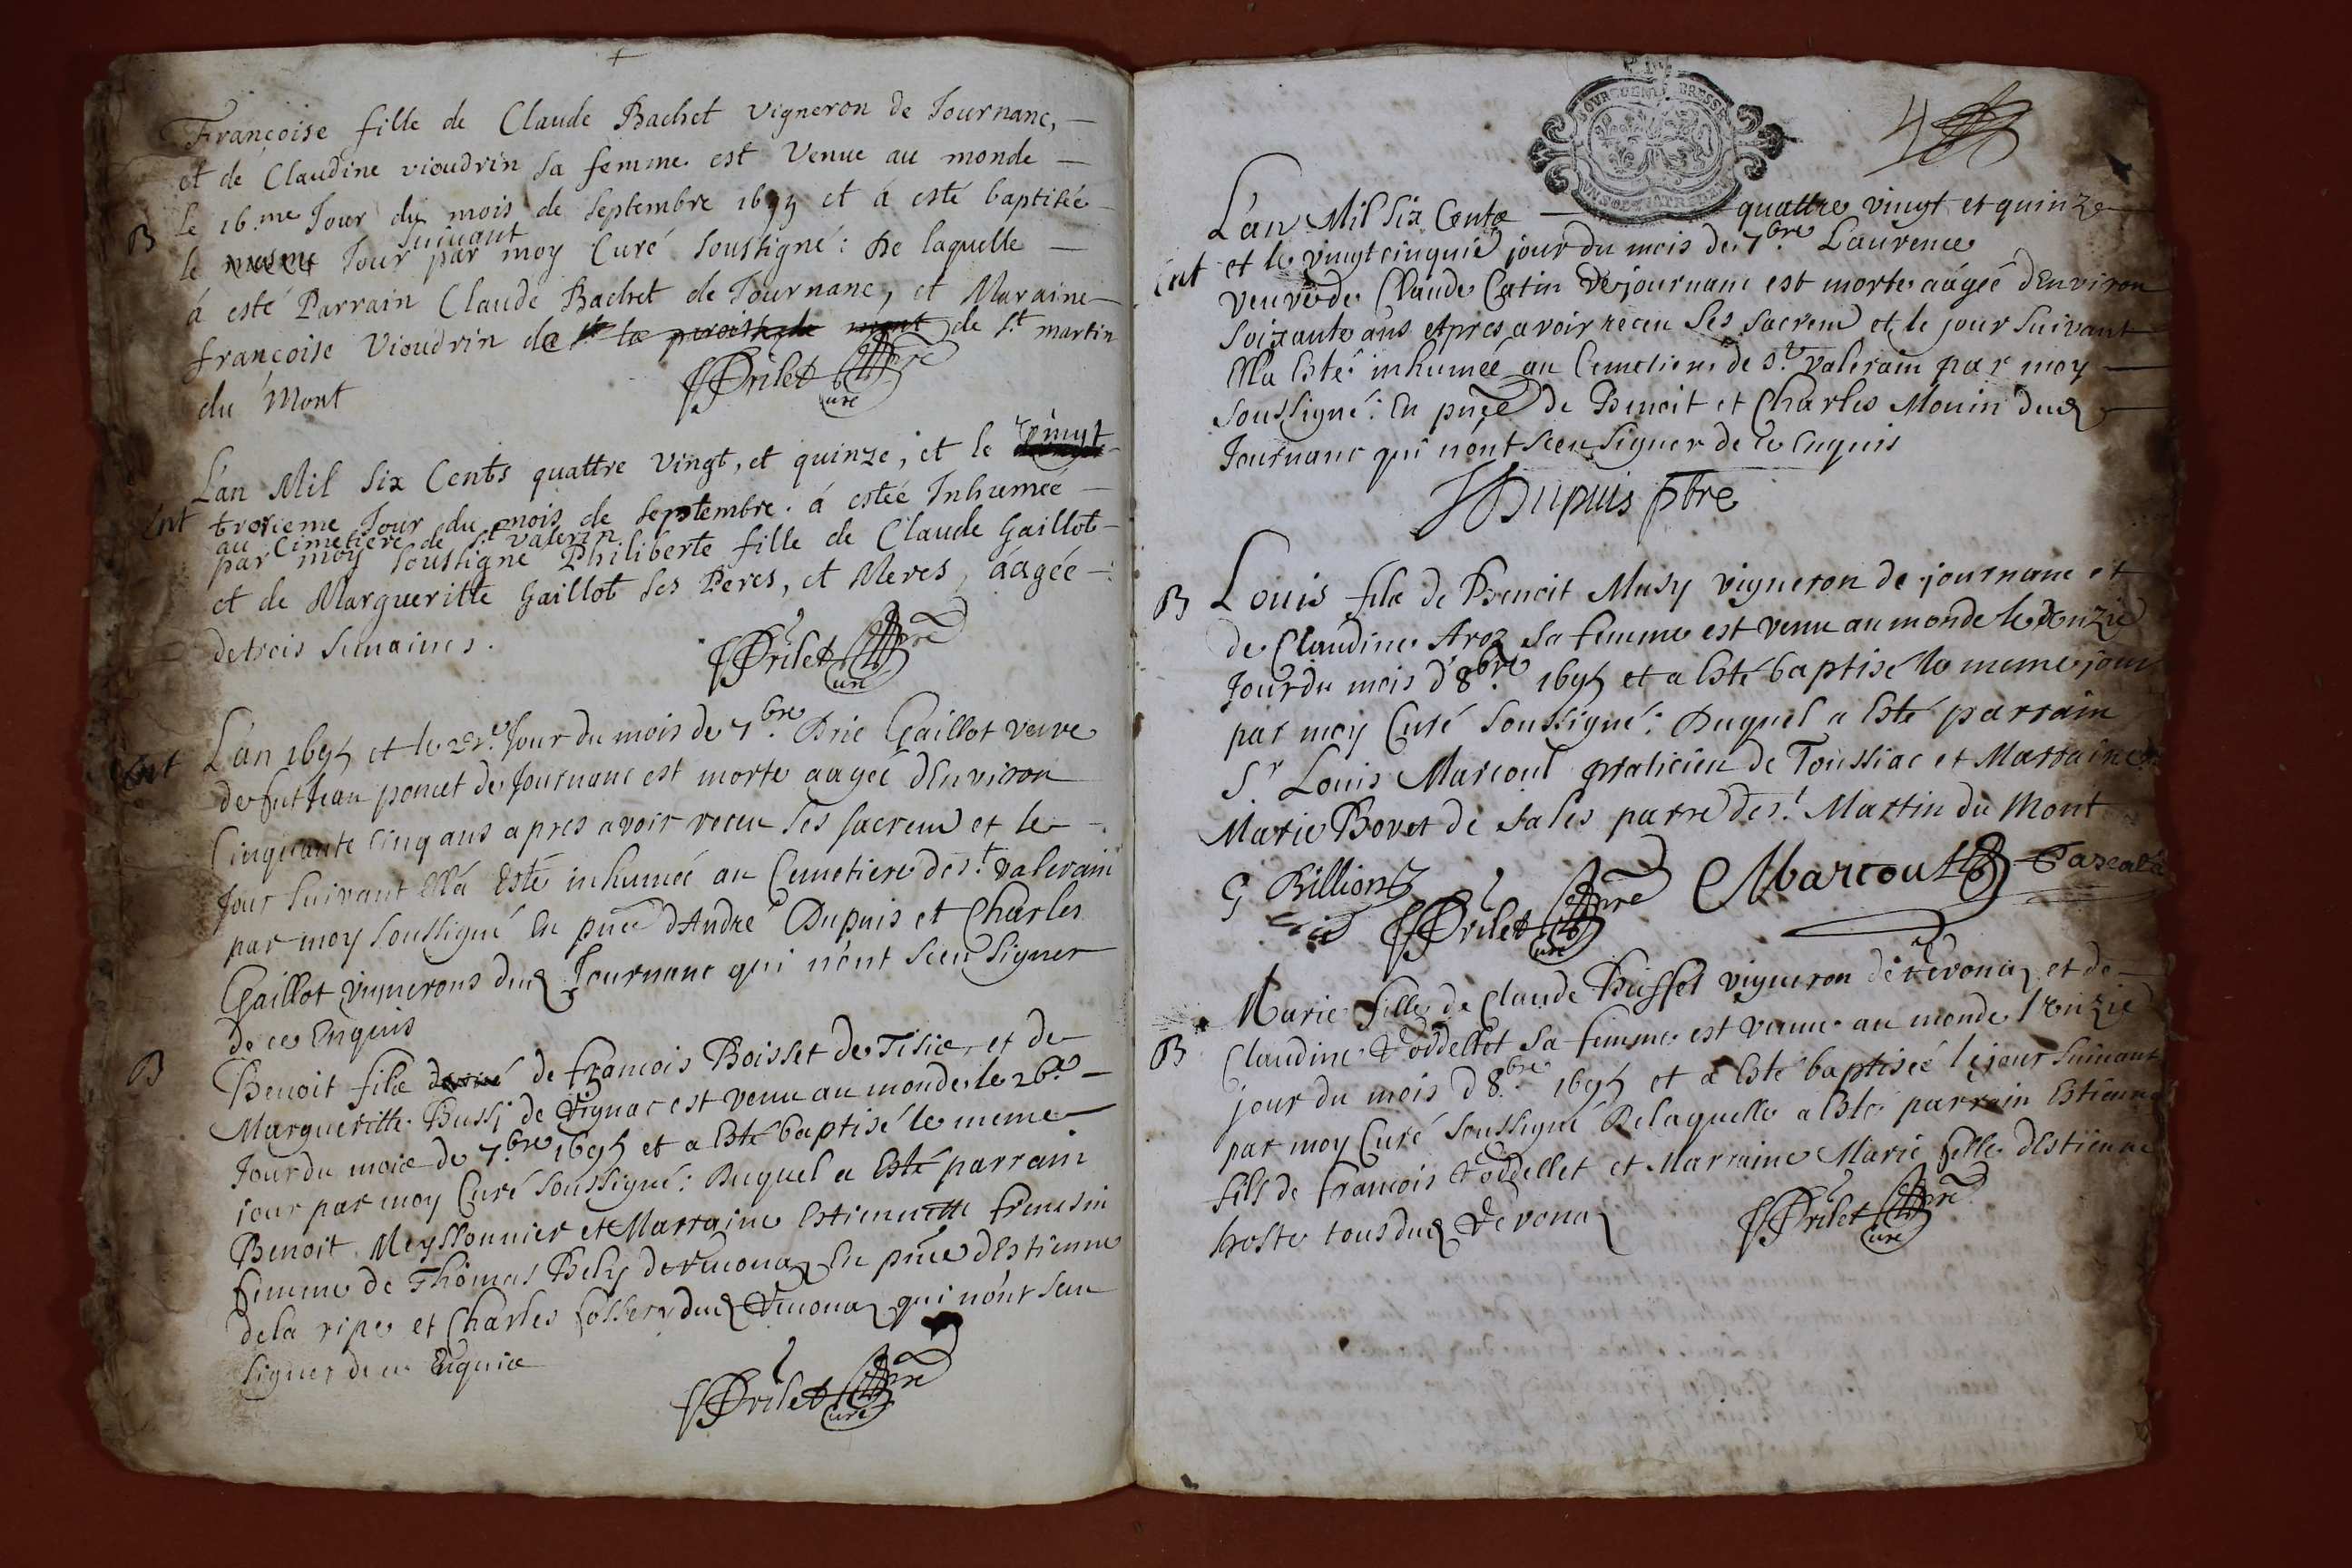 Françoise fille de Claude Bachet vigneron de Journanc,
et de Claudine vioudrin sa femme est Venue au monde
le 16.me Jour du mois de septembre 1695 et à esté baptisée
B
suivant
le Jour par moy Curé soussigné : De laquelle
à esté Parrain Claude Bachet de Journanc, et Maraine
françoise Vioudrin de de St martin
du Mont
JDrilet pbre
Curé
L'an Mil Six Cents quattre Vingt, et quinze, et le Vingt
Ent
troisieme Jour du mois de septembre. à estée Inhumee
au Cimetiere de St valerin
par moy soussigné Philiberte fille de Claude Gaillot
et de Margueritte Gaillot ses Peres, et Meres, áagée
de trois semaines.
JDrilet pbre
Curé
Ent
L'an 1695 et le Jour du mois de 7.bre Brie Gaillot veuve
de fut Jean poncet de Journanc est morte aagée dEnviron
Cinquante Cinq ans apres avoir receu ses sacrem et le
Jour suivant Ella Esté inhumée au Cemetiere de st valerain
par moy soussigné En pñce dAndré Dupuis et Charles
Gaillot vignerons dud Journanc qui nont sceu signer
de ce Enquis
B
Benoit fils de françois Boisset de Tisie, et de
Margueritte Bussi de Vignac est venu au monde le 26.e
Jour du mois de 7.bre 1695 et a Esté baptisé le meme
jour par moy Curé soussigné : Duquel a Esté parrain
Benoit Meyssonnier et Marraine Estiennette
femme de Thomas Bely de En pñce dEstienne
dela ripe et Charles dud qui nont sceu
signer de ce Enquis
JDrilet pbre
Curé
BOURGOGNE BRESSE
4
L'an Mil Six Cents quattre vingt et quinze
Ent
et le vingt cinquie jour du mois de 7.bre Laurence
veuve de Claude Catin de journanc est morte aágée dEnviron
soixante ans apres avoir receu ses sacrem et le jour suivant
Ella Esté inhumée au Cemetiere de st valerain par moy
soussigné : En pñce de Benoit et Charles Monin dud
Journanc qui nont sceu signer de ce Enquis
JDupuis pbre
B
Louis fils de Benoit Musy vigneron de journanc et
de Claudine Aroz sa femme est venu au monde le onzie
Jour du mois d'8.bre 1695 et a Esté baptisé le meme jour
par moy Curé soussigné : Duquel a Esté parrain
Sr Louis Marcoul praticien de Toussiac et Marraine
Marie Bovet de sales parre de st Martin du Mont
G Billion
JDrilet pbre
Curé
Marcoul
Marie fille de Claude Buffet vigneron de et de
B
Claudine sa femme est venue au monde l'onzie
jour du mois d 8.bre 1695 et a Esté baptisée le jour suivant
par moy Curé soussigné De laquelle a Esté parrain Estienne
fils de françois et Marraine Marie fille dEstienne
hoste tous dud
JDrilet pbre
Curé